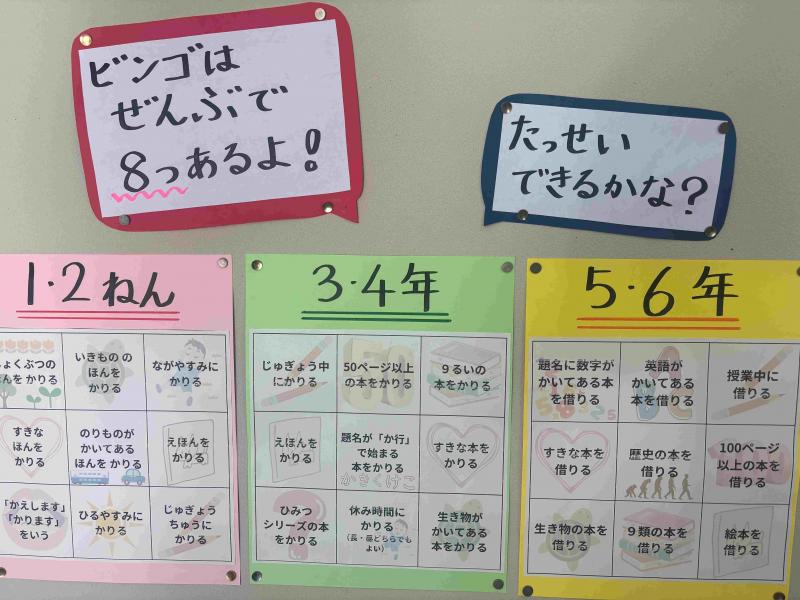 ビンゴは
ぜんぶで
8っあるよ!
たっせい
できるかな?
1・2ねん
ょくぶつの
んを かりる
いきもの の
ほんを
かりる
ながやすみに
かりる
すきな
ほんを
かりる
のりものが
かいてある
ほんを かりる
えほんを
かりる
「かえします」
「かります」
をいう
ひるやすみに
かりる
じゅぎょう
ちゅうに
かりる
3・4年
じゅぎょう中
にかりる
50ページ以上
の本をかりる
9るいの
本をかりる
えほんを
かりる
題名が「か行」
で始まる
本をかりる
かきくけこ
すきな本を
かりる
ひみつ
シリーズの本
をかりる
休み時間に
かりる
(長・昼どちらでも
よい)
生き物が
かいてある
本をかりる
5・6年
題名に数字が
かいてある本
を借りる
英語が
かいてある
本を借りる
授業中に
借りる
すきな本を
借りる
歴史の本を
借りる
100ページ
以上の本を
借りる
生き物の本を
借りる
9類の本を
借りる
絵本を
借りる